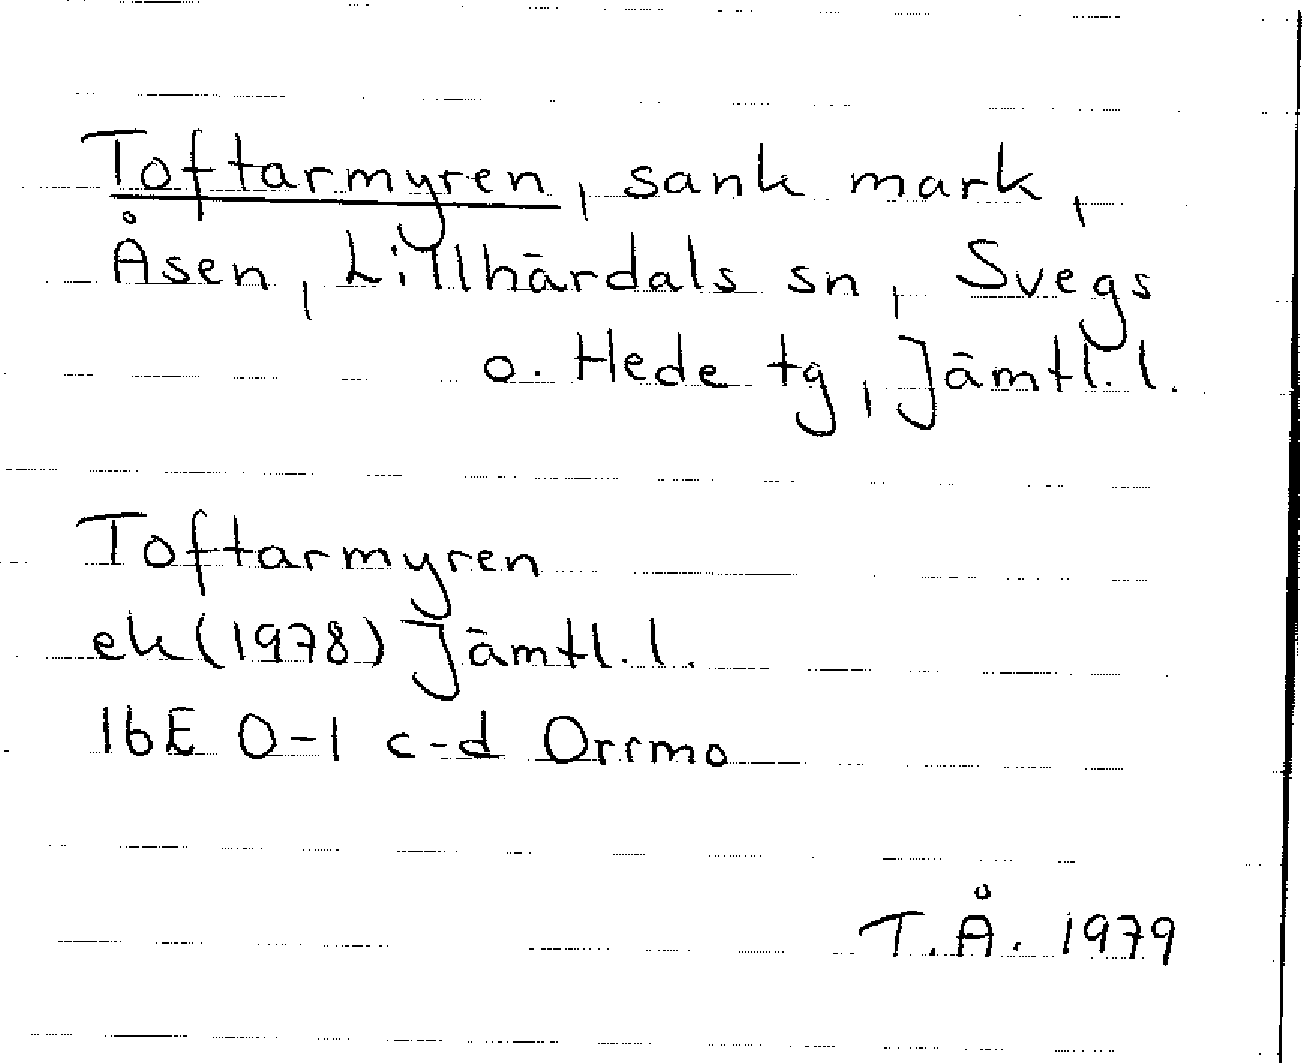 Toftarmyren, sank mark,
Åsen, Lillhärdals sn, Svegs
o. Hede tg, Jämtl. l.
Toftarmyren
ek (1978) Jämtl. l.
16E 0-1 c-d Orrmo
T.Å. 1979